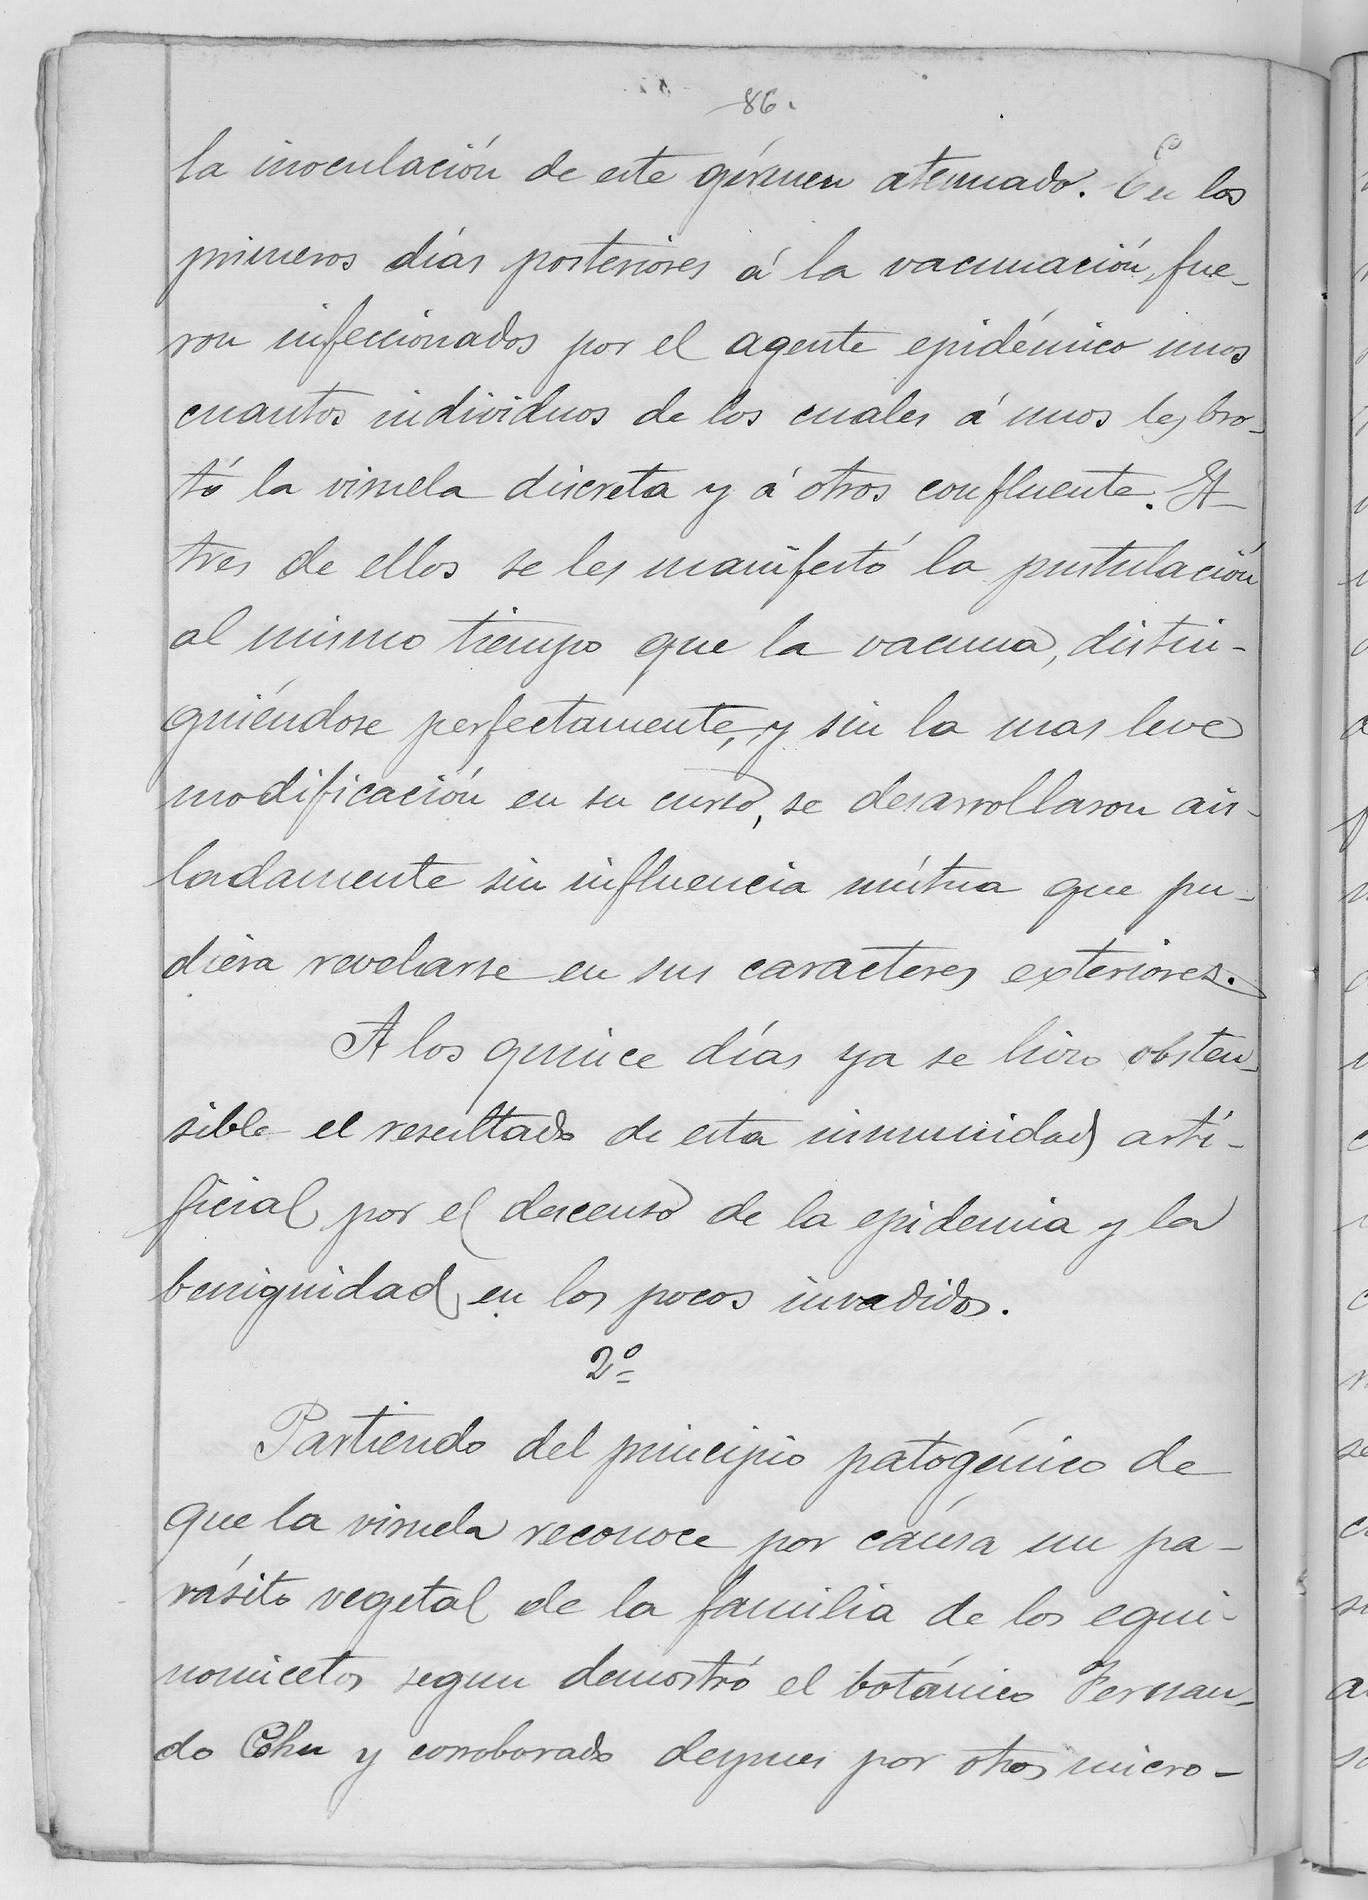 86.
la inoculación de este gérmen atenuado. En los
primeros días posteriores á la vacunación, fue-
ron infeccionados por el agente epidémico unos
cuantos individuos de los cuales á unos les bro-
tó la viruela discreta y á otros confluente. A
tres de ellos se les manifestó la pustulación
al mismo tiempo que la vacuna, distin-
guiéndose perfectamente, y sin la mas leve
modificación en su curso, se desarrollaron ais-
ladamente sin influencia mútua que pu-
diera revelarse en sus caracteres exteriores.
A los quince días ya se hizo obsten-
sible el resultado de esta inmunidad arti-
ficial por el descenso de la epidemia y la
benignidad en los pocos invadidos.
2º
Partiendo del principio patogénico de
que la viruela reconoce por causa un pa-
rásito vegetal de la familia de los equi-
nomicetos segun demostró el botánico Fernan-
do Cohn y corroborado despues por otros micro-